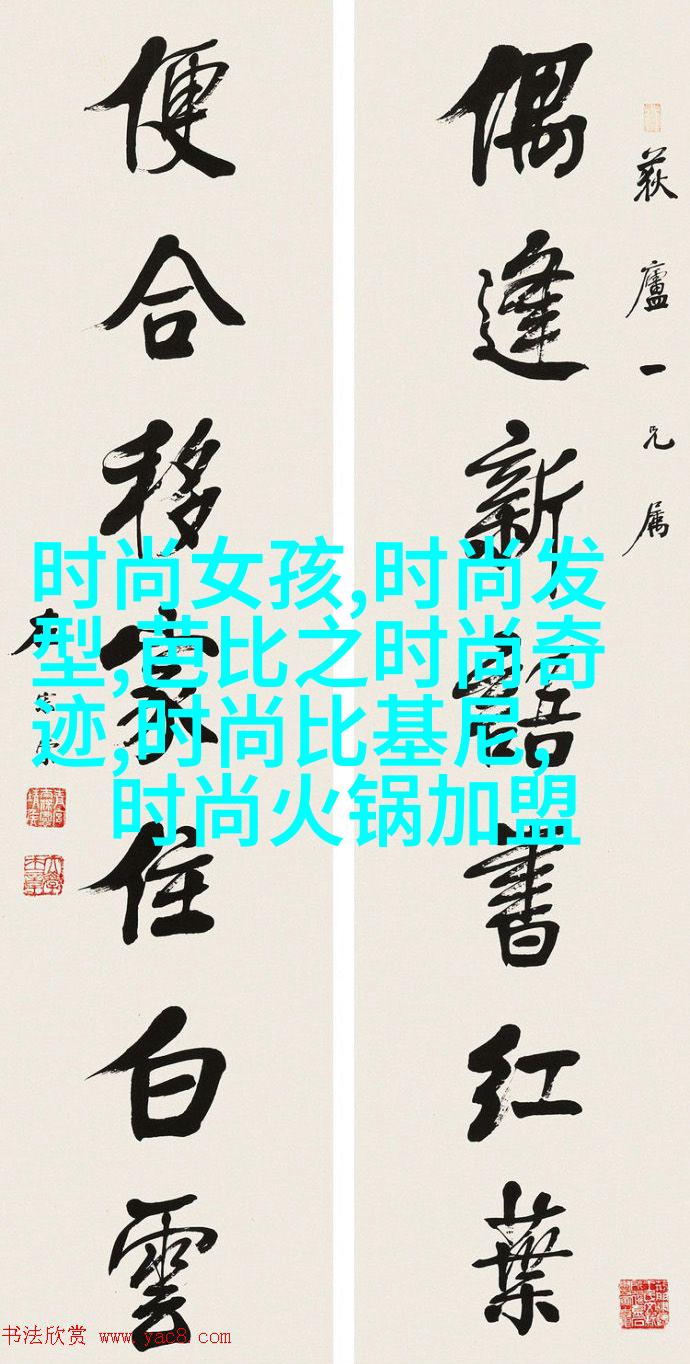 荻廬一兄属
偶逢新語書红葉
便合移家住白雲
时尚女孩,时尚发
型,芭比之时尚奇
迹,时尚比基尼,
时尚火锅加盟
书法欣赏 www.yac8.com